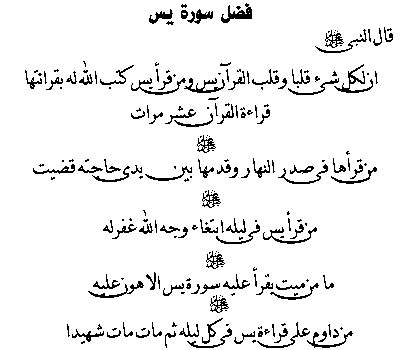 فضل سورة يس
قال النبى ﷺ
ان لكل شئ قلبا وقلب القرآن يس ومن قرأ يس كتب الله له بقرائتها
قراءة القرآن عشر مرات
ﷺ
من قرأها فى صدر النهار وقدمها بين يدى حاجته قضيت
ﷺ
من قرأ يس فى ليله ابتغاء وجه الله غفر له
ﷺ
ما من ميت يقرأ عليه سورة يس الا هون عليه
ﷺ
من داوم على قراءة يس فى كل ليله ثم مات مات شهيدا